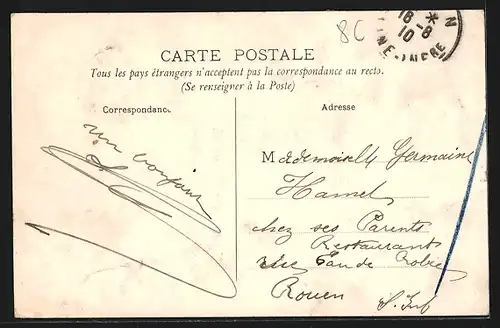 8C
18-8
10
N
INE-INFRE
CARTE POSTALE
Tous les pays étrangers n'acceptent pas la correspondance au recto.
(Se renseigner à la Poste)
Correspondance
Adresse
un bonjour
Mademoiselle Germaine
Hamel
chez ses Parents
Restaurant
rue Eau de Robec
Rouen
S. Inf